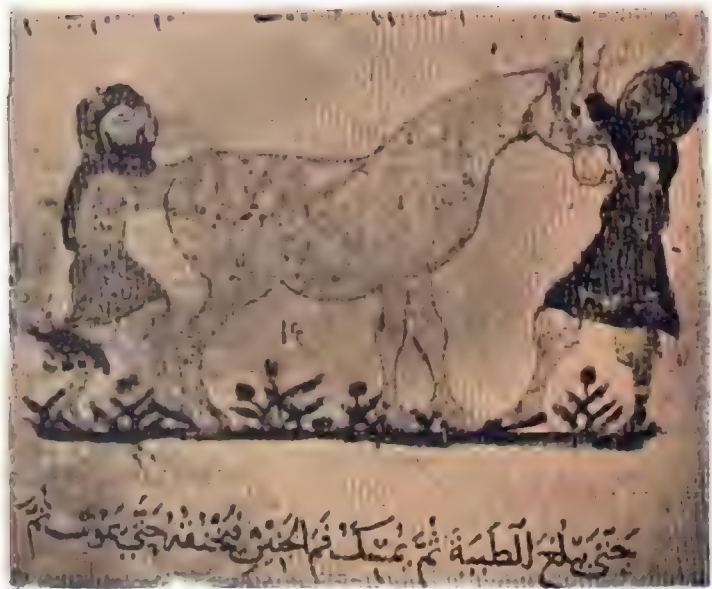 حَتَّى يَبْلُغَ الطبيبة ثُمَّ يُمْسِكُ فَمَ الجَنِينِ فَيَخْنُقُهُ حَتَّى يَمُوتَ ثُمَّ